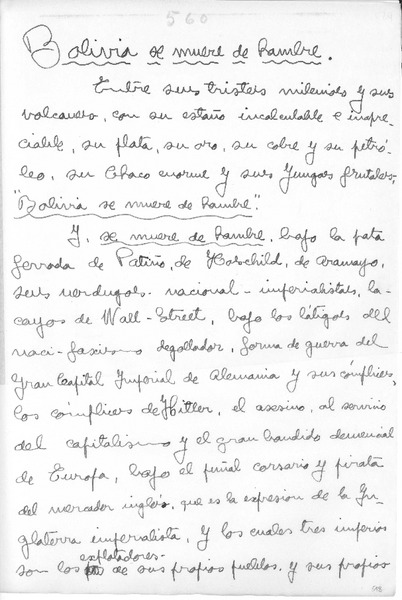 560
Bolivia se muere de hambre.
Entre sus tristes milenios y sus
volcanes, con su estaño incalculable e inapre-
ciable, su plata, su oro, su cobre y su petró-
leo, su Chaco enorme y sus Yungas frutales,
"Bolivia se muere de hambre".
Y, se muere de hambre, bajo la pata
ferrada de Patiño, de Hoschild, de Aramayo,
sus verdugos nacional-imperialistas, la-
cayos de Wall-Street, bajo los látigos del
naci-fascismo degollador, forma de guerra del
Gran Capital Imperial de Alemania y sus cómplices,
los cómplices de Hitler, el asesino, al servicio
del capitalismo y el gran bandido demencial
de Europa, bajo el puñal corsario y pirata
del mercader inglés, que es la expresión de la In-
glaterra imperialista, y los cuales tres imperios
son los explotadores de sus propios pueblos y sus propios